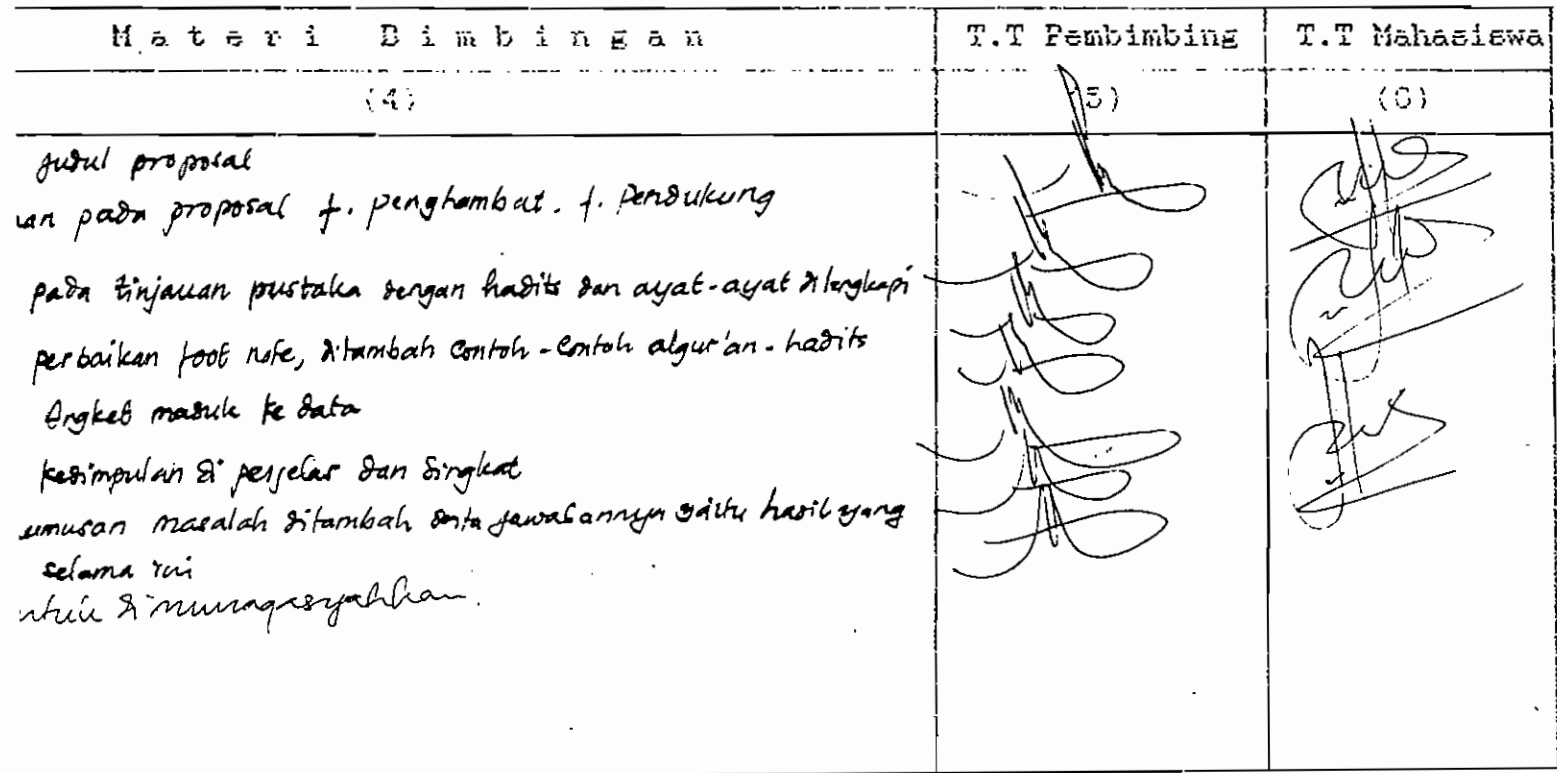 Materi Bimbingan T.T Pembimbing T.T Mahasiswa
(4) (5) (6)
Judul proposal
an pada proposal f. penghambat. f. Pendukung
pada tinjauan pustaka dengan hadits dan ayat-ayat dilengkapi
perbaikan foot note, ditambah Contoh-Contoh alqur'an-hadits
Angket masuk ke data
kesimpulan di perjelas dan singkat
umusan masalah ditambah serta jawabannya yaitu hasil yang
selama ini
ntuk di munaqasyahkan.